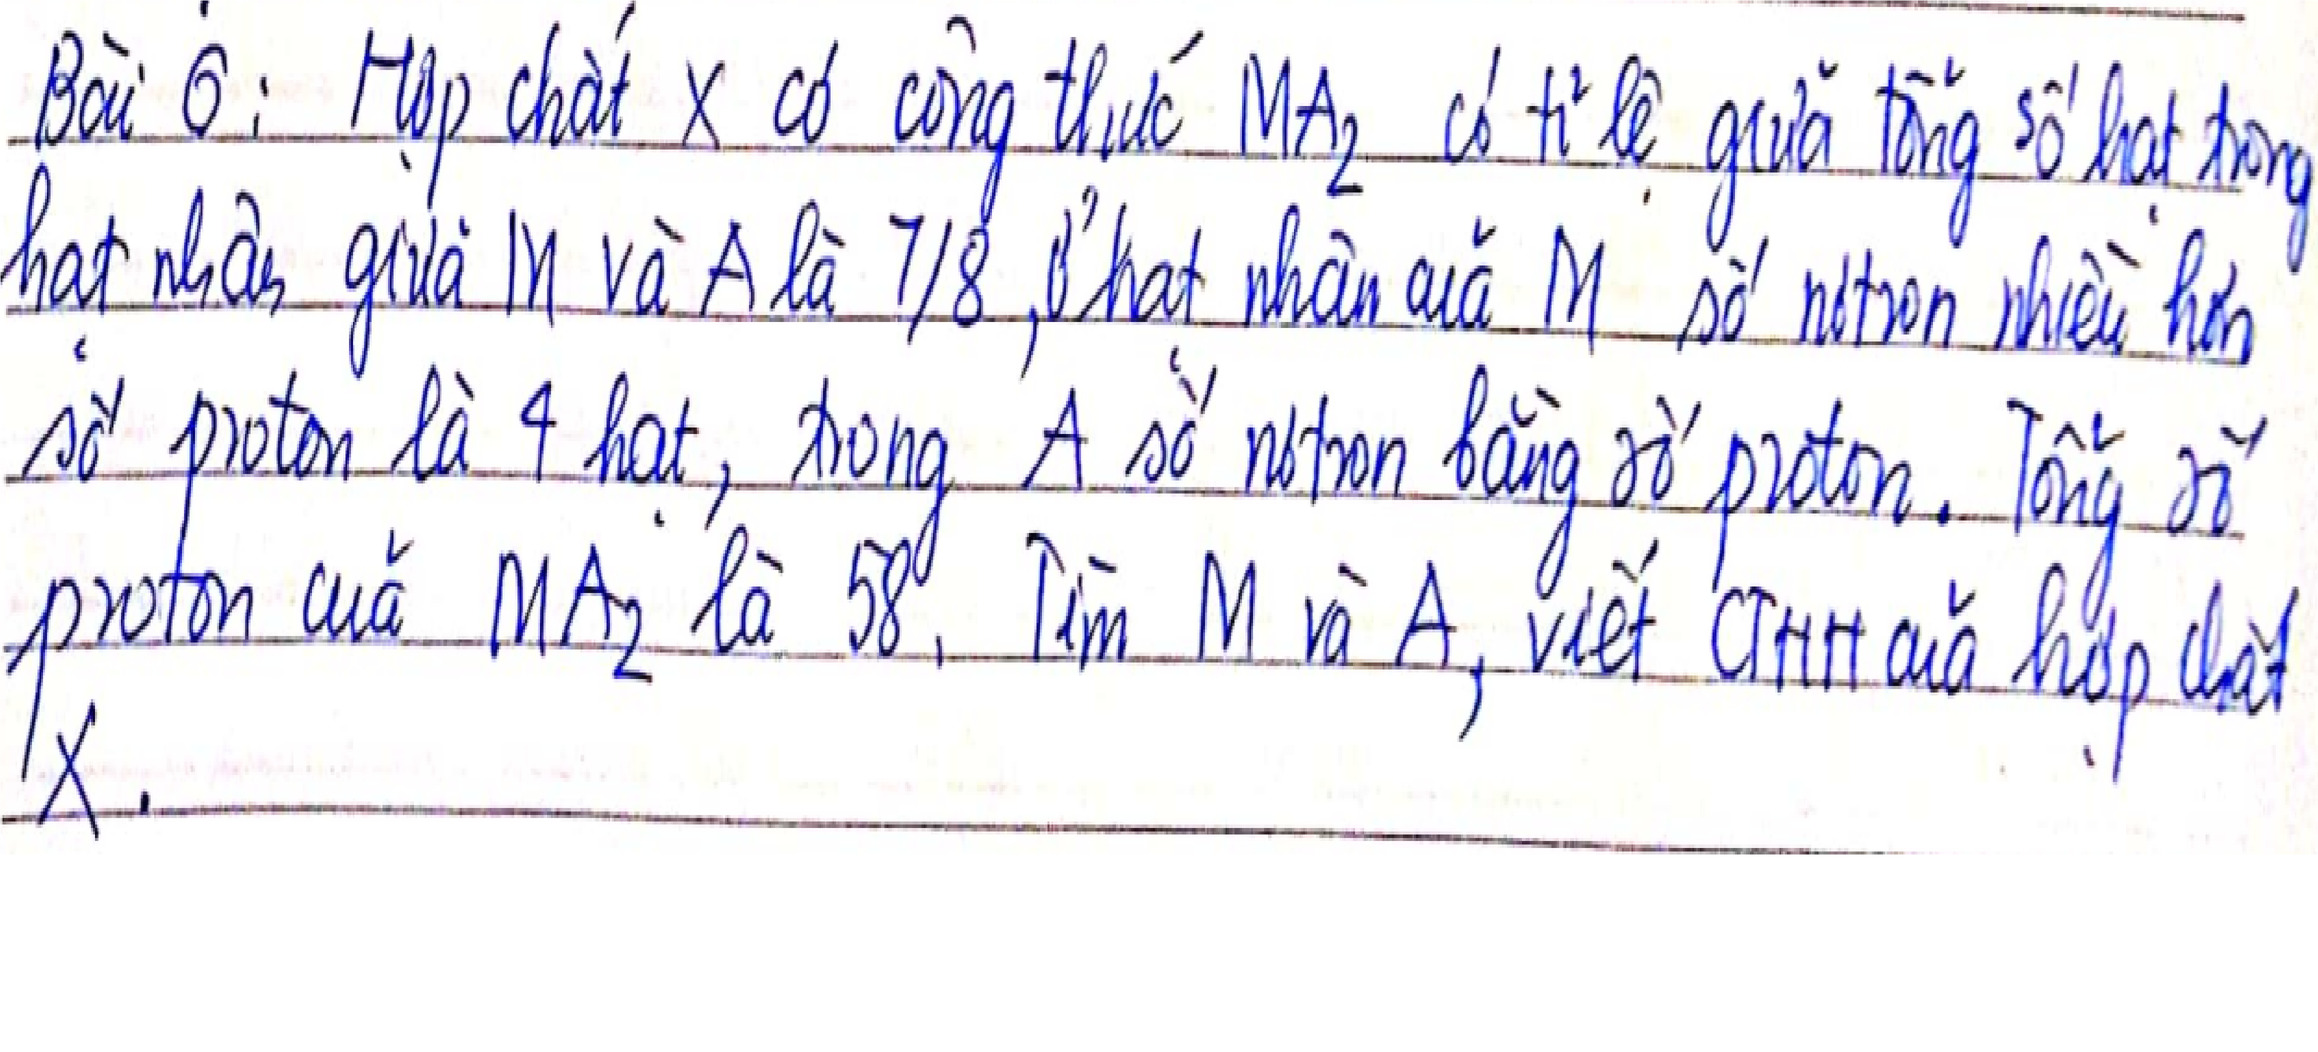 Bài 6: Hợp chất X có công thức MA2 có tỉ lệ giữa tổng số hạt trong
hạt nhân giữa M và A là 7/8, ở hạt nhân của M số nơtron nhiều hơn
số proton là 4 hạt, trong A số nơtron bằng số proton. Tổng số
proton của MA2 là 58. Tìm M và A, viết CTHH của hợp chất
X.